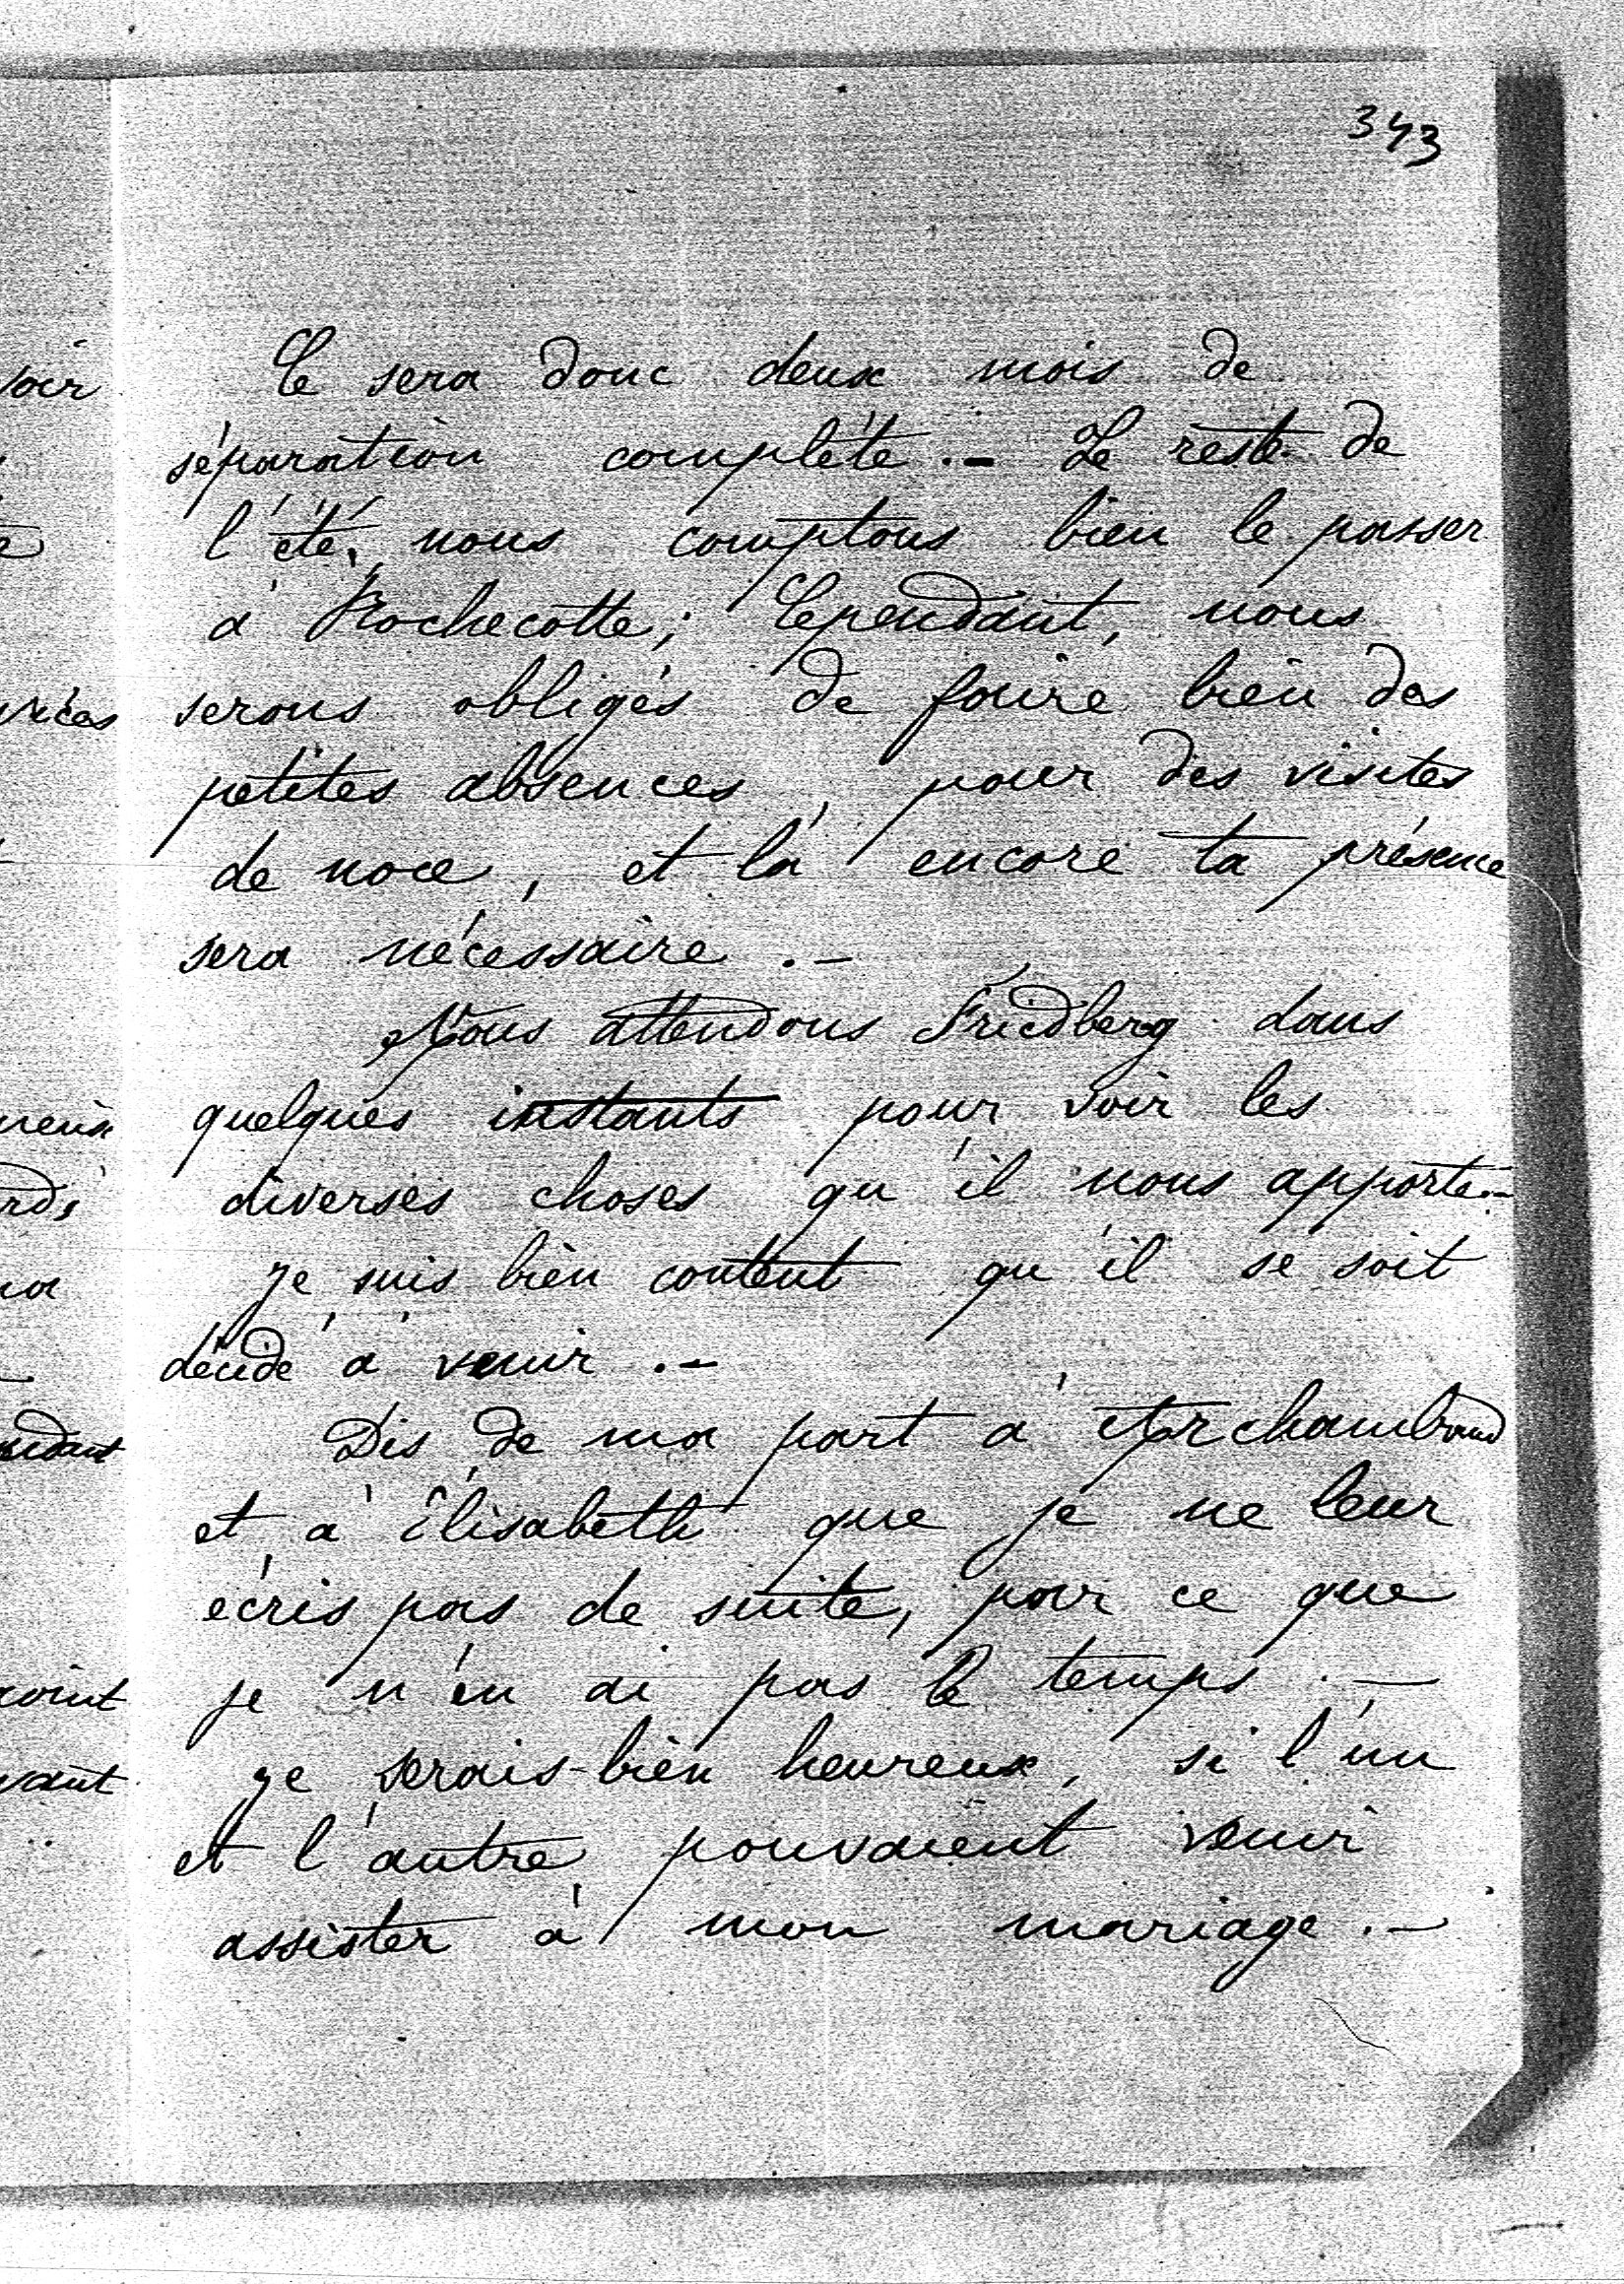 343
Ce sera donc deux mois de
séparation complète. – Le reste de
l'été, nous comptons bien le passer
à Rochecotte; Cependant, nous
serons obligés de faire bien des
petites absences, pour des visites
de noce, et là encore ta présence
sera nécessaire. –
Nous attendons Friedberg dans
quelques instants pour voir les
diverses choses qu'il nous apporte. –
Je suis bien content qu'il se soit
décidé à venir. –
Dis de ma part à Archambaud
et à Élisabeth que je ne leur
écris pas de suite, par ce que
je n'en ai pas le temps. –
Je serais bien heureux, si l'un
et l'autre pouvaient venir
assister à mon mariage. –